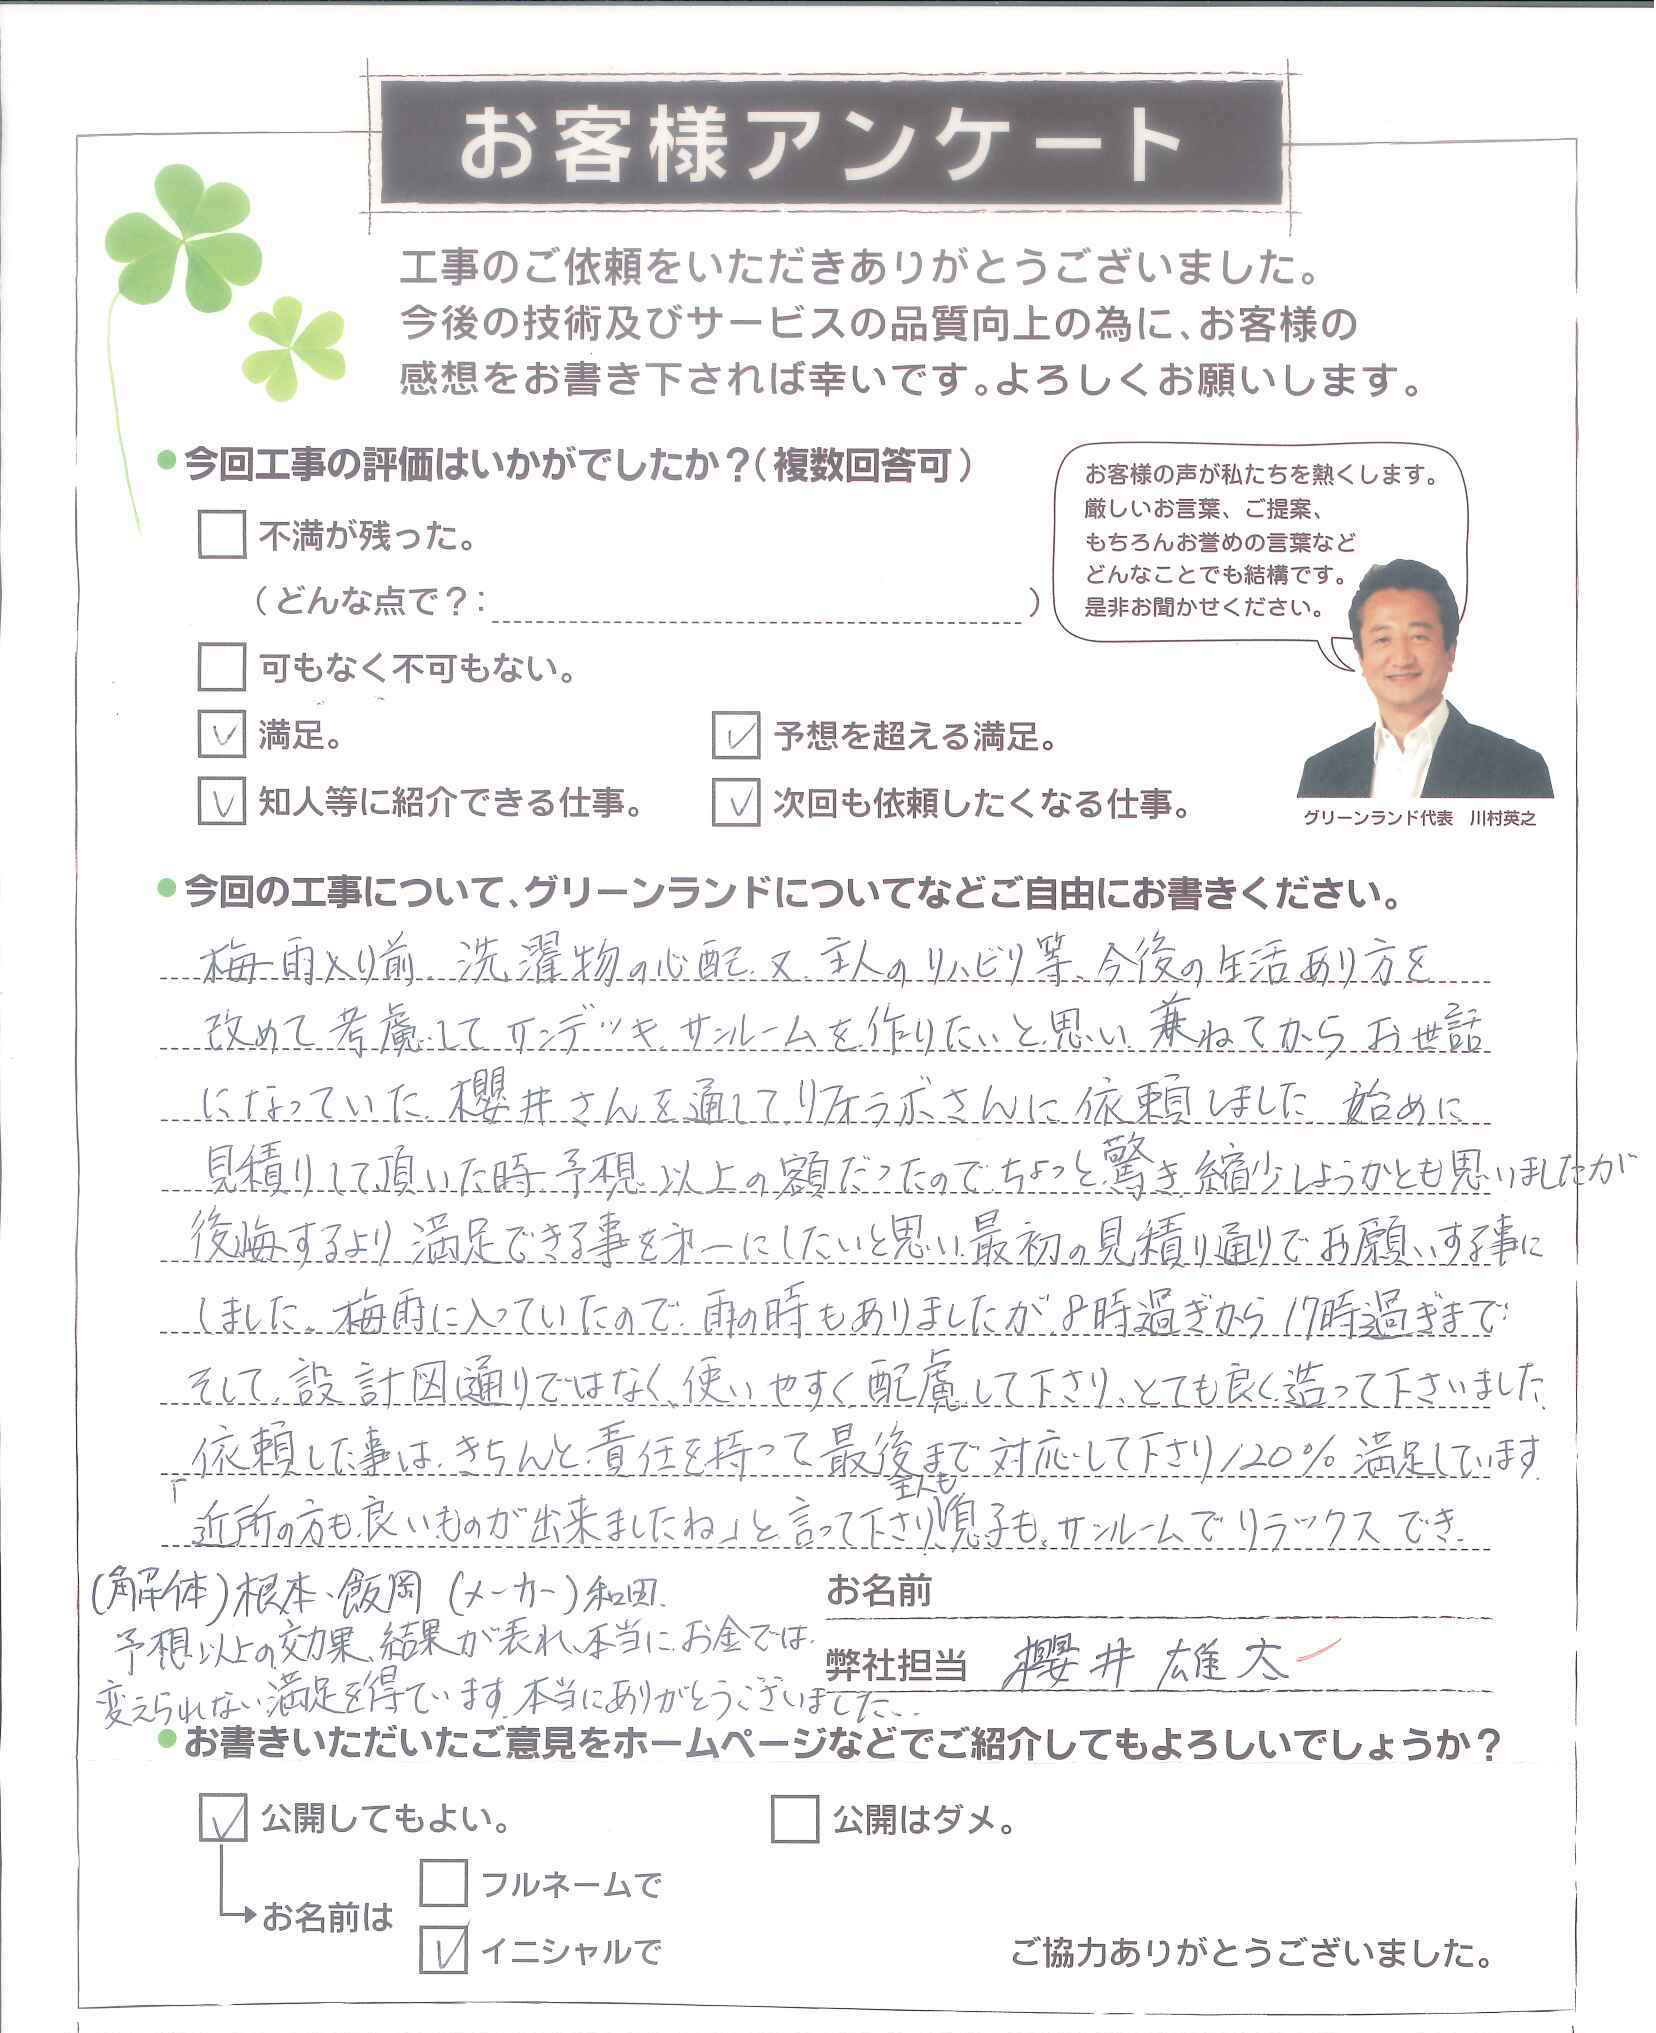 お客様アンケート
工事のご依頼をいただきありがとうございました。
今後の技術及びサービスの品質向上の為に、お客様の
感想をお書き下されば幸いです。よろしくお願いします。
●今回工事の評価はいかがでしたか？（複数回答可）
お客様の声が私たちを熱くします。
厳しいお言葉、ご提案、
もちろんお誉めの言葉など
どんなことでも結構です。
是非お聞かせください。
グリーンランド代表 川村英之
不満が残った。
（どんな点で？： ）
可もなく不可もない。
満足。
予想を超える満足。
知人等に紹介できる仕事。
次回も依頼したくなる仕事。
●今回の工事について、グリーンランドについてなどご自由にお書きください。
梅雨入り前、洗濯物の心配、又、主人のリハビリ等、今後の生活あり方を
改めて考慮してサンデッキ、サンルームを作りたいと思い、兼ねてからお世話
になっていた、櫻井さんを通して、リフォラボさんに依頼しました。始めに
見積りして頂いた時、予想以上の額だったので、ちょっと驚き、縮少しようかとも思いましたが
後悔するより満足できる事を第一にしたいと思い、最初の見積り通りでお願いする事に
しました。梅雨に入っていたので、雨の時もありましたが、8時過ぎから17時過ぎまで
そして、設計図通りではなく、使いやすく配慮して下さり、とても良く造って下さいました。
依頼した事は、きちんと責任を持って最後まで対応して下さり120%満足しています。
「近所の方も良いものが出来ましたね」と言って下さり、主人も息子も、サンルームでリラックスでき、
(解体)根本・飯岡 (メーカー)和田
予想以上の効果、結果が表れ、本当にお金では
変えられない満足を得ています。本当にありがとうございました。
お名前
弊社担当 櫻井 雄太
●お書きいただいたご意見をホームページなどでご紹介してもよろしいでしょうか？
公開してもよい。
公開はダメ。
お名前は
フルネームで
イニシャルで
ご協力ありがとうございました。